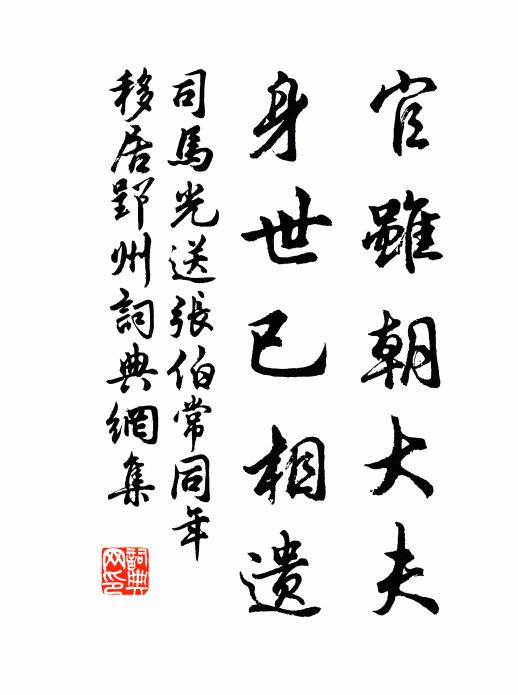 官雖朝大夫
身世已相遗
司馬光送張伯常同年
移居郢州詞典網集
詞典网印